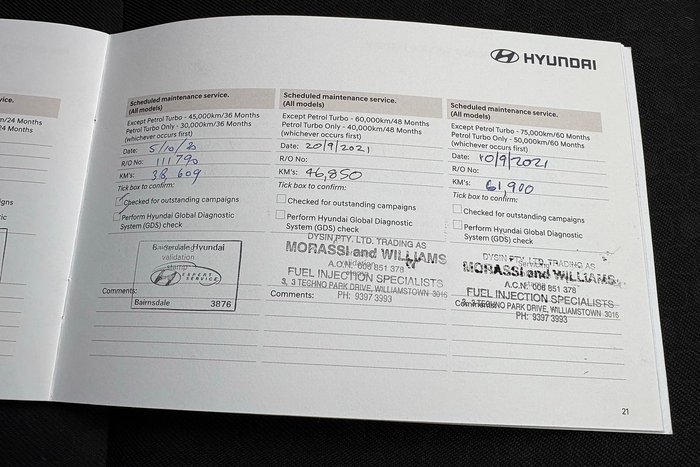 HYUNDAI
vice.
m/24 Months
24 Months
gns
tic
Scheduled maintenance service.
(All models)
Except Petrol Turbo - 45,000km/36 Months
Petrol Turbo Only - 30,000km/36 Months
(whichever occurs first)
Date: 5/10/20
R/O No: 111790
KM's: 38,609
Tick box to confirm:
Checked for outstanding campaigns
Perform Hyundai Global Diagnostic
System (GDS) check
Bairnsdale Hyundai
validation
stamp
EXPERT
SERVICE
Comments:
Bairnsdale 3876
Scheduled maintenance service.
(All models)
Except Petrol Turbo - 60,000km/48 Months
Petrol Turbo Only - 40,000km/48 Months
(whichever occurs first)
Date: 20/9/2021
R/O No:
KM's: 46,850
Tick box to confirm:
Checked for outstanding campaigns
Perform Hyundai Global Diagnostic
System (GDS) check
DYSIN PTY. LTD. TRADING AS
MORASSI and WILLIAMS
A.C.N. 006 851 378
FUEL INJECTION SPECIALISTS
3, 3 TECHNO PARK DRIVE, WILLIAMSTOWN 3016
Comments:
PH: 9397 3993
Scheduled maintenance service.
(All models)
Except Petrol Turbo - 75,000km/60 Months
Petrol Turbo Only - 50,000km/60 Months
(whichever occurs first)
Date: 10/9/2021
R/O No:
KM's: 61,900
Tick box to confirm:
Checked for outstanding campaigns
Perform Hyundai Global Diagnostic
System (GDS) check
DYSIN PTY. LTD. TRADING AS
MORASSI and WILLIAMS
A.C.N. 006 851 378
FUEL INJECTION SPECIALISTS
3, 3 TECHNO PARK DRIVE, WILLIAMSTOWN 3016
Comments:
PH: 9397 3993
21